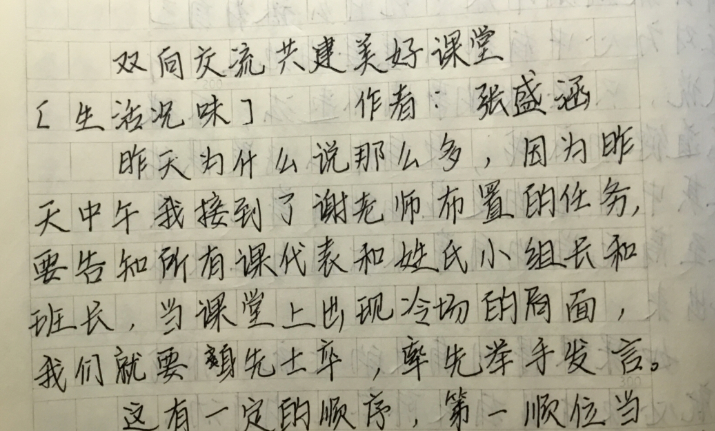 双向交流共建美好课堂
[生活况味] 作者：张盛涵
昨天为什么说那么多，因为昨
天中午我接到了谢老师布置的任务，
要告知所有课代表和姓氏小组长和
班长，当课堂上出现冷场的局面，
我们就要身先士卒，率先举手发言。
这有一定的顺序，第一顺位当